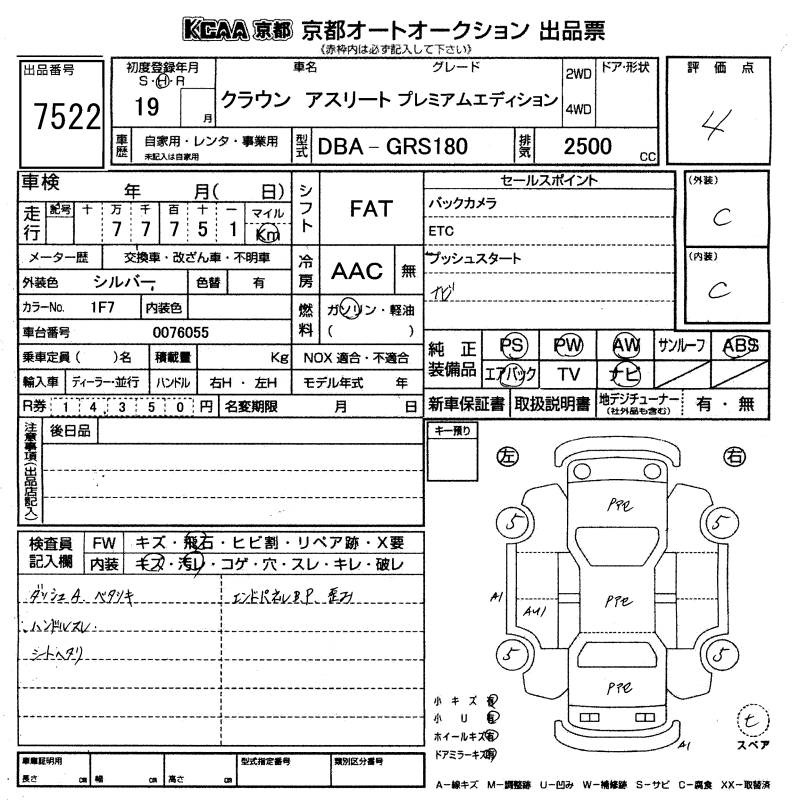 KCAA 京都 京都オートオークション 出品票
《赤枠内は必ず記入して下さい》
出品番号
7522
初度登録年月
S・H・R
19 月
車名 グレード
クラウン アスリート プレミアムエディション
2WD
4WD
ドア・形状
評価点
4
車歴
自家用・レンタ・事業用
未記入は自家用
型式
DBA-GRS180
排気
2500 CC
車検 年 月( 日)
走行
記号 十 万 千 百 十 一 マイル
7 7 7 5 1 Km
メーター歴 交換車・改ざん車・不明車
外装色 シルバー 色替 有
カラーNo. 1F7 内装色
車台番号 0076055
乗車定員( )名 積載量 Kg
輸入車 ディーラー・並行 ハンドル 右H・左H
R券 14,350円 名変期限 月 日
シフト
FAT
冷房
AAC 無
燃料
ガソリン・軽油
( )
NOX適合・不適合
モデル年式 年
セールスポイント
バックカメラ
ETC
プッシュスタート
ナビ
(外装)
C
(内装)
C
純正装備品
PS PW AW サンルーフ ABS
エアバック TV ナビ
新車保証書 取扱説明書 地デジチューナー
(社外品も含む)
有・無
注意事項(出品店記入)
後日品
キー預り
左 右
検査員記入欄
FW キズ・飛石・ヒビ割・リペア跡・X要
内装 キズ・汚レ・コゲ・穴・スレ・キレ・破レ
ダッシュA ベタツキ
ハンドルスレ.
シートヘタリ
エンドパネルB.P.
5 5
5 5
A1
AU1
A1
小キズ有
小U有
ホイールキズ有
ドアミラーキズ有
t
スペア
車庫証明用
長さ cm 幅 cm 高さ cm
型式指定番号 類別区分番号
A-線キズ M-調整跡 U-凹み W-補修跡 S-サビ C-腐食 XX-取替済